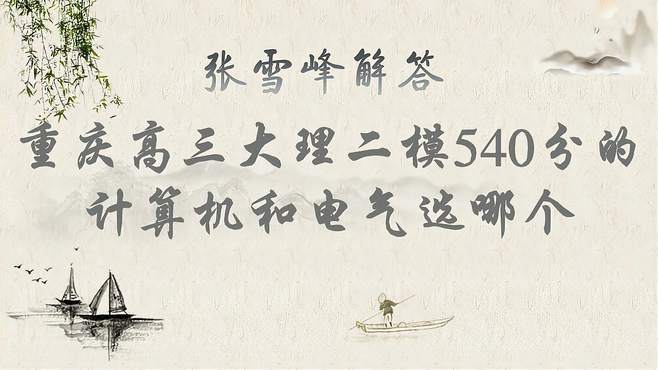 张雪峰解答
重庆高三大理二模540分的
计算机和电气选哪个